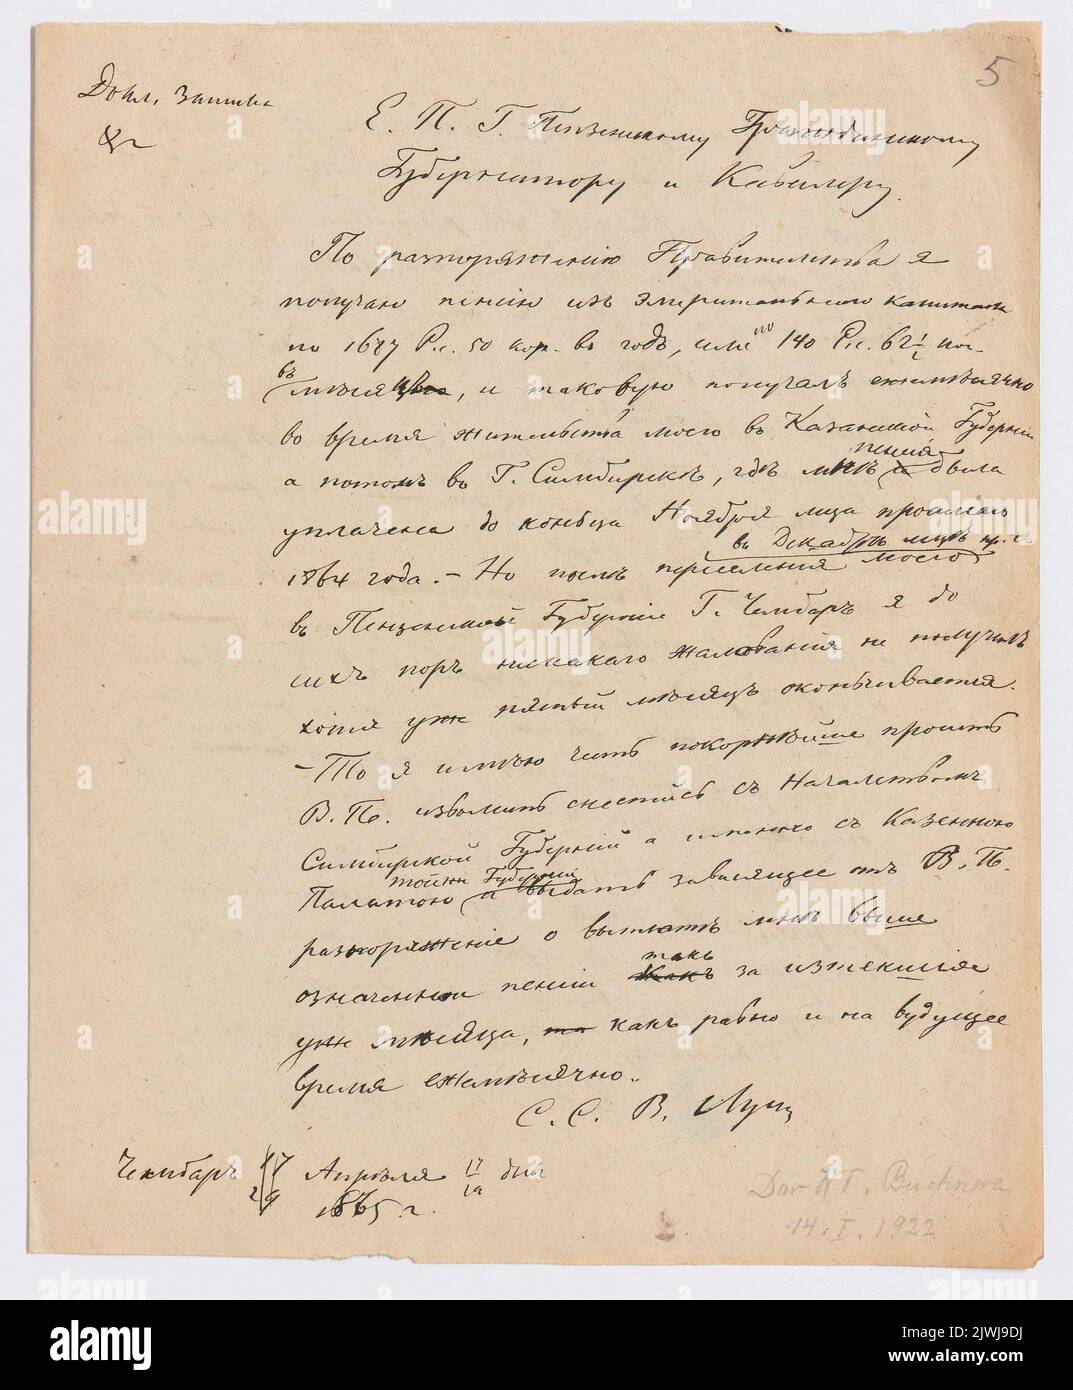 5
Докл. записка
Е. П. Г. Пензенскому Гражданскому
Губернатору и Кавалеру.
По распоряжению Правительства я
получаю пенсию изъ Эмеритальнаго капитала
по 1687 Р.с. 50 коп. въ годъ, или по 140 Р.с. 62 1/2 коп.
въ мѣсяцъ, и таковую получалъ ежемѣсячно
во время жительства моего въ Казанской Губерніи
а потомъ въ Г. Симбирскѣ, гдѣ мнѣ пенсія была
уплачена до конца Ноября м-ца прошлаго
1864 года. – Но послѣ переселенія моего въ Декабрѣ мцѣ пр. г.
въ Пензенской Губерніи Г. Чембаръ я до
сихъ поръ никакого жалованія не получилъ
хотя уже пятый мѣсяцъ оканчивается.
– То я имѣю честь покорнѣйше просить
В. П. изволить снестись съ Начальствомъ
Симбирской Губерніи а именно съ Казенною
Палатою тойже Губерніи и выдать зависящее отъ В. П.
распоряженіе о выплатѣ мнѣ выше
означенной пенсіи такъ за истекшіе
уже мѣсяца, какъ равно и на будущее
время ежемѣсячно.
С. С. В.
Чембаръ 17/29 Апрѣля 17/29 дня
1865 г.
Dar W P. Buchnera
14. I. 1922
alamy
Image ID: 2WJ9DJ
www.alamy.com